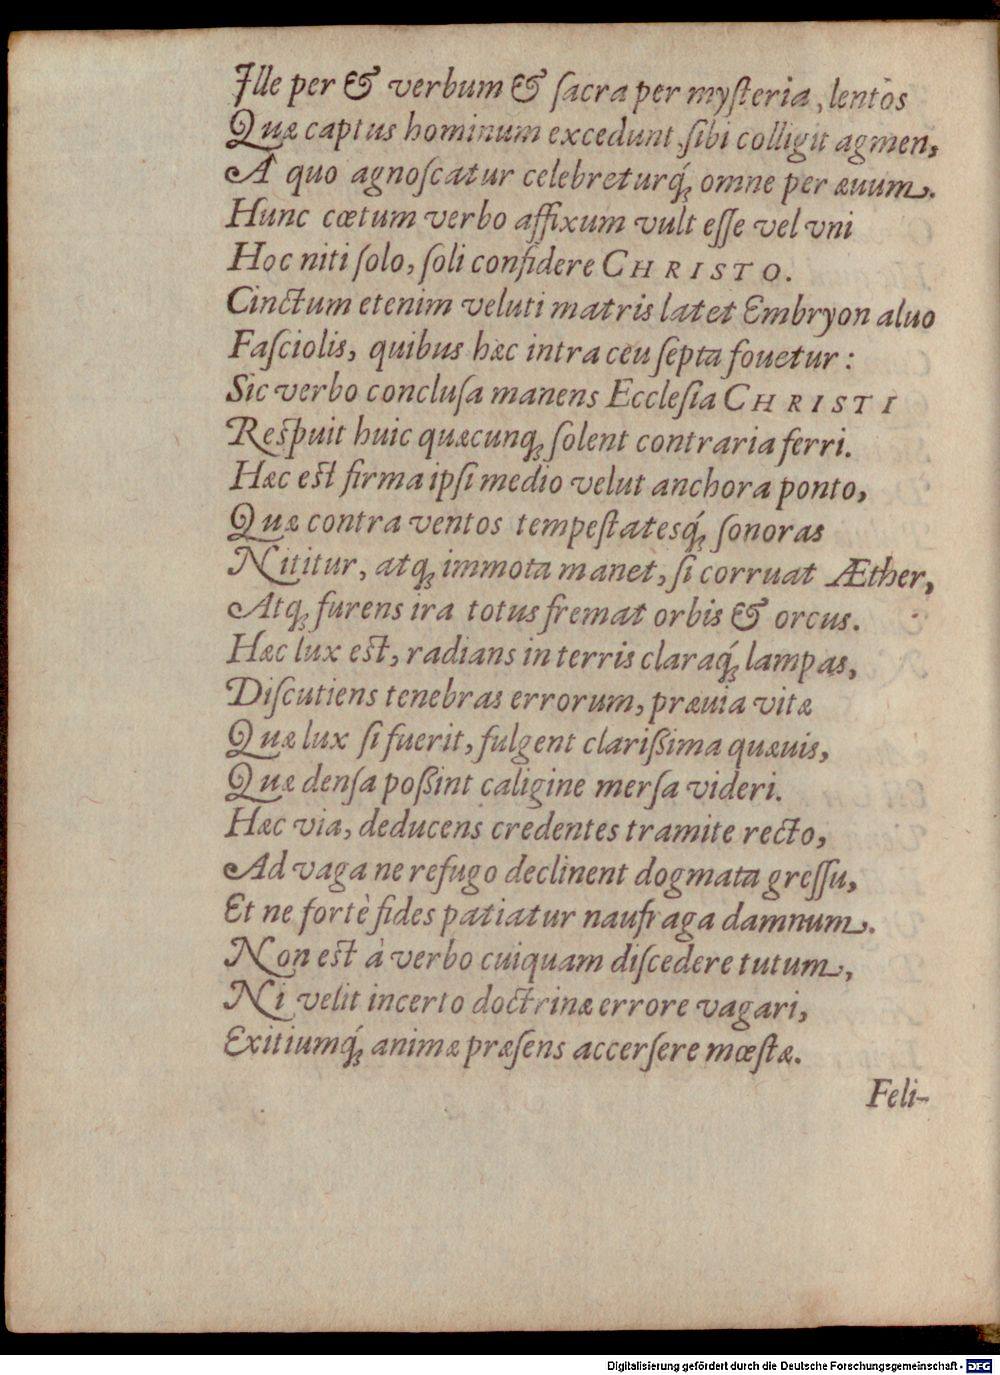 Ille per & verbum & ſacra per myſteria, lentos
Quæ captus hominum excedunt, ſibi colligit agmen,
A quo agnoſcatur celebreturq́; omne per æuum.
Hunc cœtum verbo affixum vult eſſe vel vni
Hoc niti ſolo, ſoli confidere CHRISTO.
Cinctum etenim veluti matris latet Embryon aluo
Faſciolis, quibus hæc intra ceu ſepta fouetur:
Sic verbo concluſa manens Eccleſia CHRISTI
Reſpuit huic quæcunq; ſolent contraria ferri.
Hæc eſt firma ipſi medio velut anchora ponto,
Quæ contra ventos tempeſtatesq́; ſonoras
Nititur, atq; immota manet, ſi corruat Æther,
Atq; furens ira totus fremat orbis & orcus.
Hæc lux eſt, radians in terris claraq́; lampas,
Diſcutiens tenebras errorum, præuia vitæ
Quæ lux ſi fuerit, fulgent clarißima quæuis,
Quæ denſa poßint caligine merſa videri.
Hæc via, deducens credentes tramite recto,
Ad vaga ne refugo declinent dogmata greſſu,
Et ne fortè fides patiatur naufraga damnum.
Non eſt à verbo cuiquam diſcedere tutum,
Ni velit incerto doctrinæ errore vagari,
Exitiumq́; animæ præſens accerſere mœſtæ.
Feli-
Digitalisierung gefördert durch die Deutsche Forschungsgemeinschaft - DFG